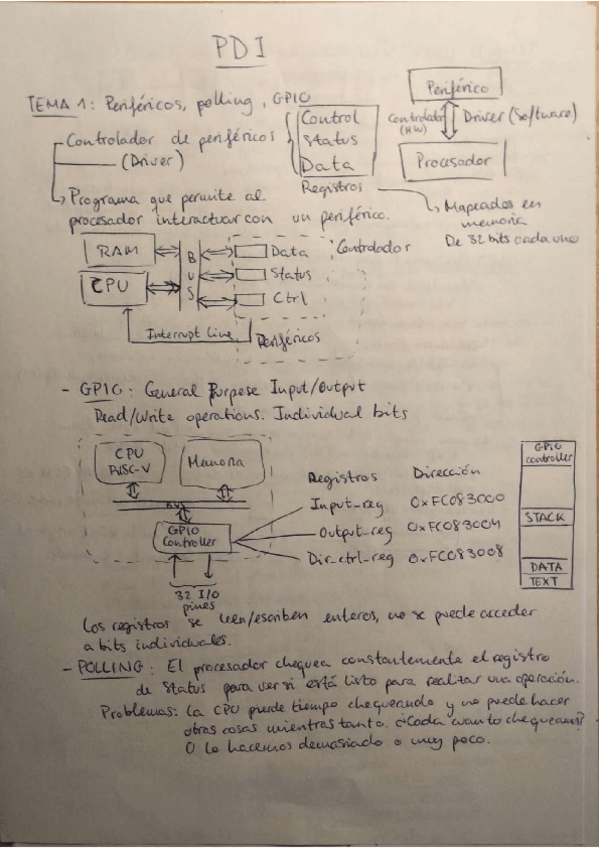 PDI
TEMA 1: Periféricos, polling, GPIO
Periférico
Controlador (HW)
Driver (Software)
Procesador
Controlador de periféricos
(Driver)
Control
Status
Data
Registros
Mapeados en
memoria
De 32 bits cada uno
Programa que permite al
procesador interactuar con un periférico.
RAM
CPU
BUS
Data
Status
Ctrl
Controlador
Interrupt Line
Periféricos
- GPIO: General Purpose Input/Output
Read/Write operations. Individual bits
CPU
RISC-V
Memoria
BUS
GPIO
Controller
32 I/O
pines
Registros Dirección
Input_reg 0xFC083000
Output_reg 0xFC083004
Dir_ctrl_reg 0xFC083008
GPIO
controller
STACK
DATA
TEXT
Los registros se leen/escriben enteros, no se puede acceder
a bits individuales.
- POLLING: El procesador chequea constantemente el registro
de Status para ver si está listo para realizar una operación.
Problemas: La CPU pierde tiempo chequeando y no puede hacer
otras cosas mientras tanto. ¿Cada cuanto chequeamos?
O lo hacemos demasiado o muy poco.